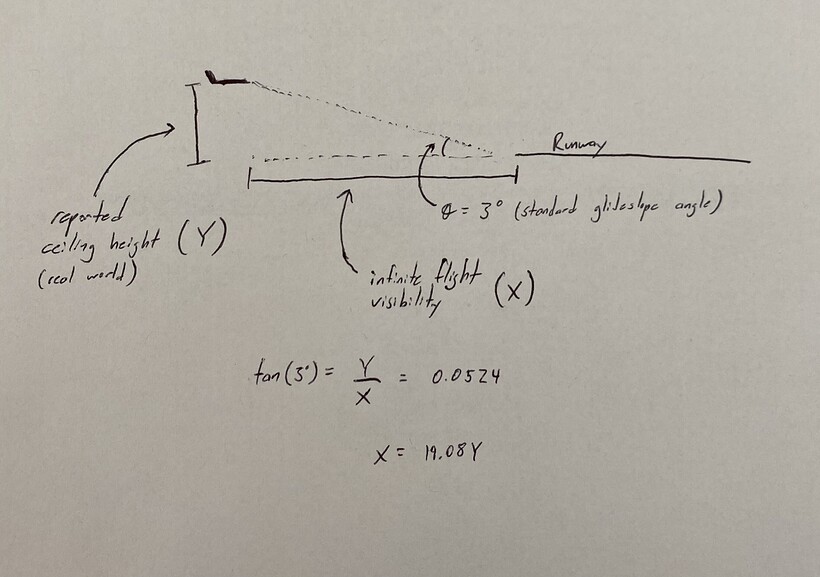 Runway
θ = 3° (standard glideslope angle)
reported
ceiling height (Y)
(real world)
infinite flight
visibility (X)
tan(3°) = Y/X = 0.0524
X = 19.08Y